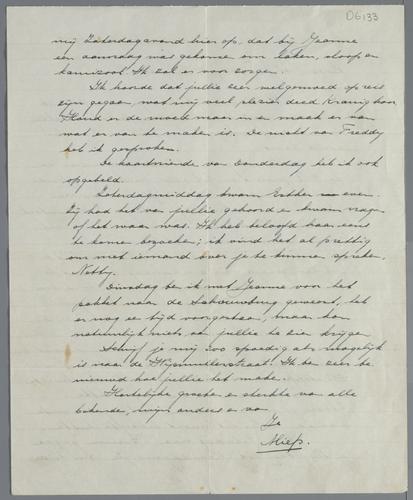 D6133
mij Zaterdagavond hier op, dat bij Jeanne
een aanvraag was gekomen om laken, sloop en
kamizool. Ik zal er voor zorgen.
Ik hoorde dat jullie zeer welgemoed op reis
zijn gegaan, wat mij veel plezier deed
Houd er de moed maar in en maak er van
wat er van te maken is. De nicht van Freddy
heb ik gesproken.
De kaartvriende van Donderdag heb ik ook
opgebeld.
Zaterdagmiddag kwam Esther even.
Zij had het van jullie gehoord en kwam vragen
of het waar was. Ik heb beloofd haar eens
te komen bezoeken; ik vind het al prettig
om met iemand over je te kunnen spreken.
Netty.
Dinsdag ben ik met Jeanne voor het
pakket naar de Schouwburg geweest, heb
er nog een tijd voorgestaan, maar kon
natuurlijk niets van jullie te zien krijgen.
Schrijf je mij zoo spoedig als mogelijk
is naar de Ik ben zeer be-
nieuwd hoe jullie het maken.
Hartelijke groeten en sterkte van alle
bekenden, niet anders van
Je
Miep.